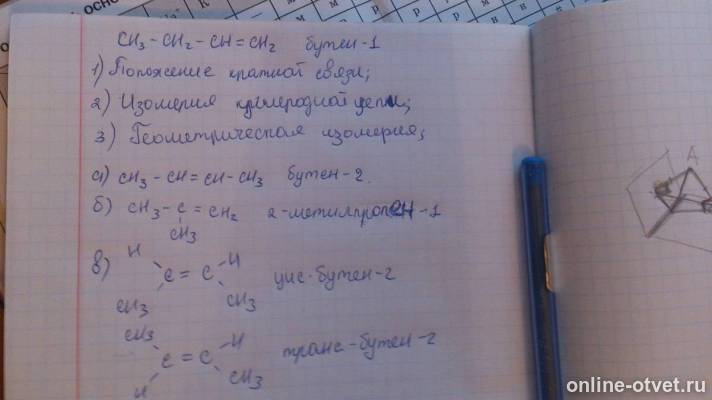 CH₃ - CH₂ - CH = CH₂ бутен-1
1) Положение кратной связи;
2) Изомерия углеродной цепи;
3) Геометрическая изомерия;
а) CH₃ - CH = CH - CH₃ бутен-2.
б) CH₃ - C = CH₂ 2-метилпропен-1
CH₃
в) H H
C = C цис-бутен-2
CH₃ CH₃
CH₃ H
C = C транс-бутен-2
H CH₃
A
online-otvet.ru